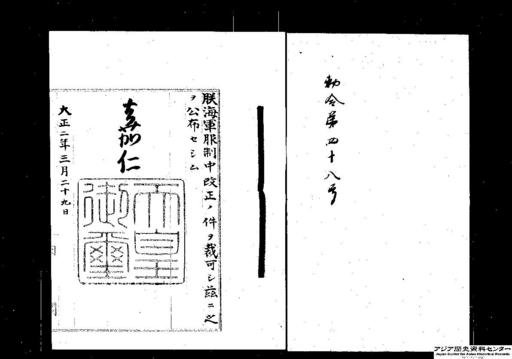 勅令第四十八号
朕海軍服制中改正ノ件ヲ裁可シ茲ニ之
ヲ公布セシム
嘉仁
天皇
御璽
大正二年三月二十九日
アジア歴史資料センター
Japan Center for Asian Historical Records